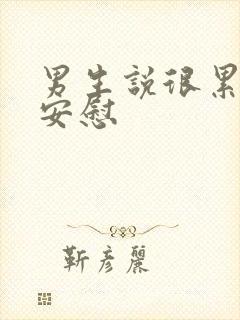 男生說很累
安慰
靳彥麗